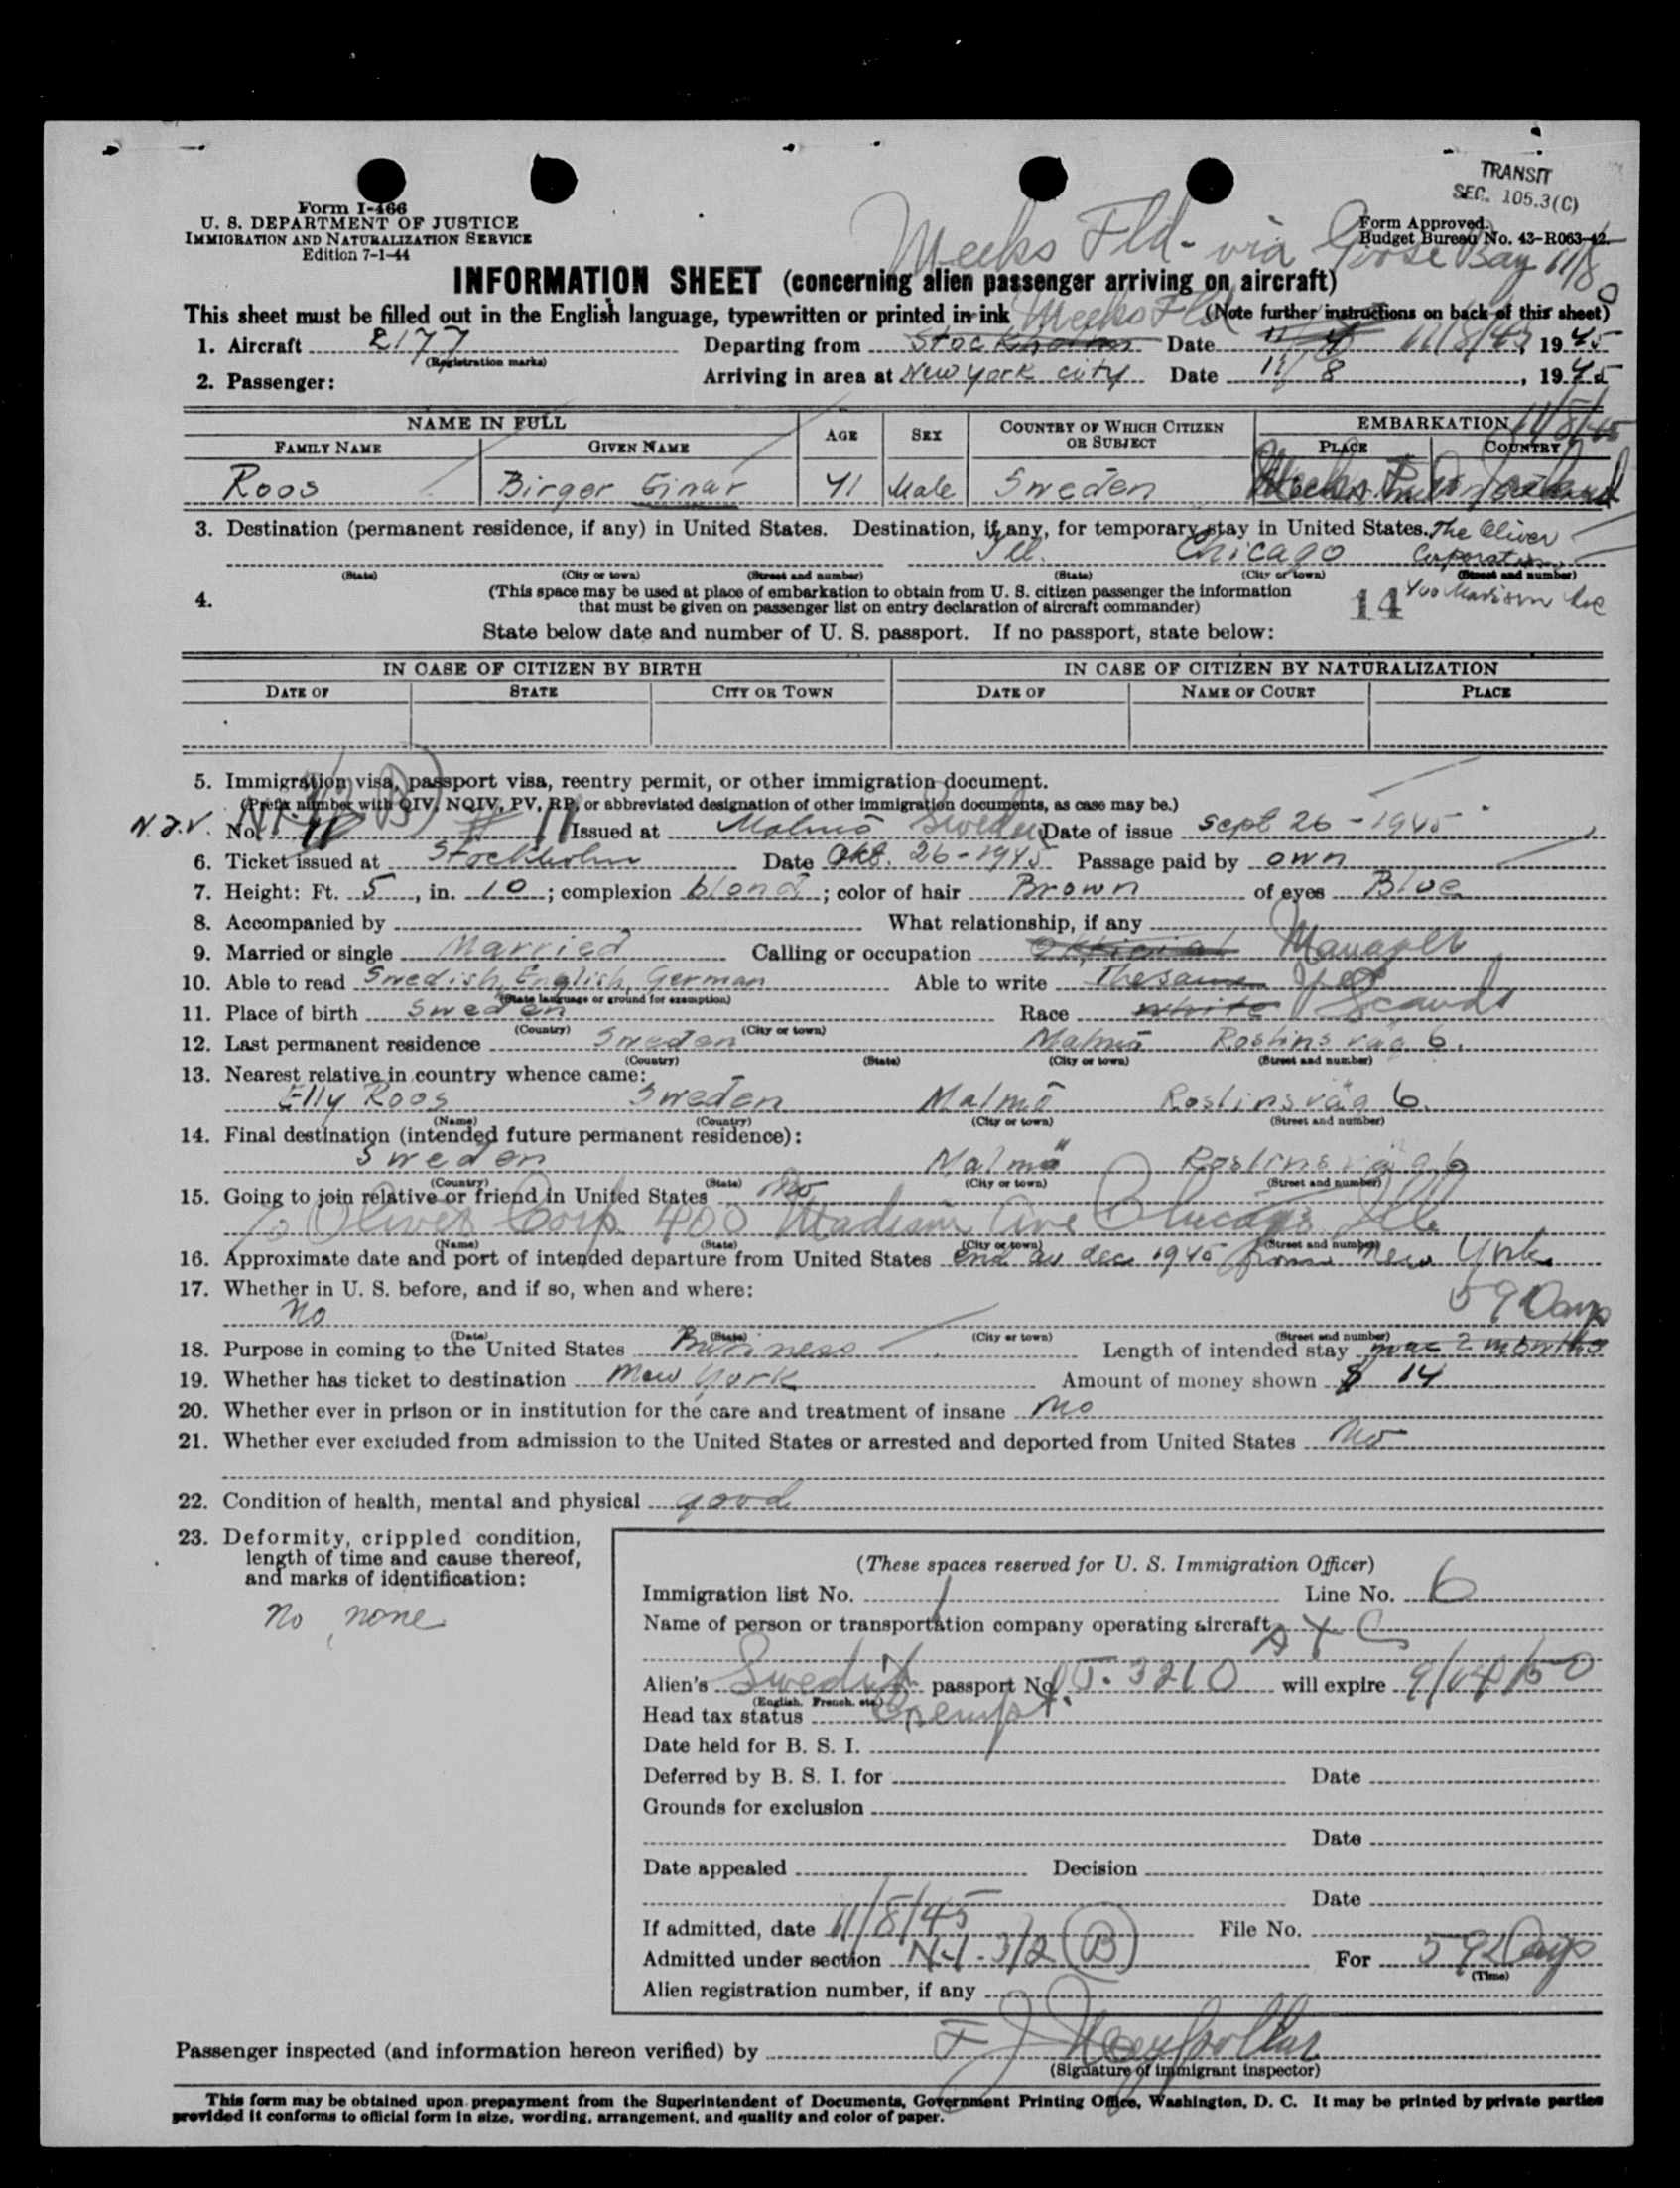 TRANSIT
SEC. 105.3(C)
Form I-466
U. S. DEPARTMENT OF JUSTICE
IMMIGRATION AND NATURALIZATION SERVICE
Edition 7-1-44
Form Approved.
Budget Bureau No. 43-R063-42.
Meeks Fld - via Goose Bay 11/8
INFORMATION SHEET (concerning alien passenger arriving on aircraft)
This sheet must be filled out in the English language, typewritten or printed in ink (Note further instructions on back of this sheet)
Meeks Fld
1. Aircraft 2177 Departing from Stockholm Date 11/8/45, 1945
(Registration marks)
2. Passenger: Arriving in area at New York City Date 11/8, 1945
NAME IN FULL AGE SEX COUNTRY OF WHICH CITIZEN OR SUBJECT EMBARKATION 11/8/45
FAMILY NAME GIVEN NAME PLACE COUNTRY
Roos Birger Einar 41 Male Sweden Meeks
3. Destination (permanent residence, if any) in United States. Destination, if any, for temporary stay in United States. The Oliver
Ill. Chicago Corporation
(State) (City or town) (Street and number) (State) (City or town) (Street and number)
400 Madison Ave
4. (This space may be used at place of embarkation to obtain from U. S. citizen passenger the information
that must be given on passenger list on entry declaration of aircraft commander) 14
State below date and number of U. S. passport. If no passport, state below:
IN CASE OF CITIZEN BY BIRTH IN CASE OF CITIZEN BY NATURALIZATION
DATE OF STATE CITY OR TOWN DATE OF NAME OF COURT PLACE
5. Immigration visa, passport visa, reentry permit, or other immigration document.
(Prefix number with QIV, NQIV, PV, RP, or abbreviated designation of other immigration documents, as case may be.)
No. # 11 Issued at Malmö Sweden Date of issue Sept 26 - 1945
6. Ticket issued at Stockholm Date Okt. 26 - 1945 Passage paid by own
7. Height: Ft. 5, in. 10; complexion blond; color of hair Brown of eyes Blue
8. Accompanied by What relationship, if any
9. Married or single Married Calling or occupation Manager
10. Able to read Swedish, English, German Able to write The same Yes
(State language or ground for exemption)
11. Place of birth Sweden Race White Scand
(Country) (City or town)
12. Last permanent residence Sweden Malmö Roslins väg 6.
(Country) (State) (City or town) (Street and number)
13. Nearest relative in country whence came:
Elly Roos Sweden Malmö Roslinsväg 6.
(Name) (Country) (City or town) (Street and number)
14. Final destination (intended future permanent residence):
Sweden Malmö Roslinsväg 6
(Country) (State) (City or town) (Street and number)
15. Going to join relative or friend in United States No
Oliver Corp. 400 Madison Ave Chicago Ill
(Name) (State) (City or town) (Street and number)
16. Approximate date and port of intended departure from United States end av dec 1945 from New York
17. Whether in U. S. before, and if so, when and where:
No 59 Days
(Date) (State) (City or town) (Street and number)
18. Purpose in coming to the United States Business Length of intended stay max 2 months
19. Whether has ticket to destination New York Amount of money shown $ 14
20. Whether ever in prison or in institution for the care and treatment of insane No
21. Whether ever excluded from admission to the United States or arrested and deported from United States No
22. Condition of health, mental and physical good
23. Deformity, crippled condition,
length of time and cause thereof,
and marks of identification:
No, none
(These spaces reserved for U. S. Immigration Officer)
Immigration list No. 1 Line No. 6
Name of person or transportation company operating aircraft
Alien's Swedish passport No. 3210 will expire 9/14/50
(English, French, etc.)
Head tax status Exempt
Date held for B. S. I.
Deferred by B. S. I. for Date
Grounds for exclusion
Date
Date appealed Decision
Date
If admitted, date 11/8/45 File No.
Admitted under section 3/2 (B) For 59 Days
(Time)
Alien registration number, if any
Passenger inspected (and information hereon verified) by
(Signature of immigrant inspector)
This form may be obtained upon prepayment from the Superintendent of Documents, Government Printing Office, Washington, D. C. It may be printed by private parties
provided it conforms to official form in size, wording, arrangement, and quality and color of paper.